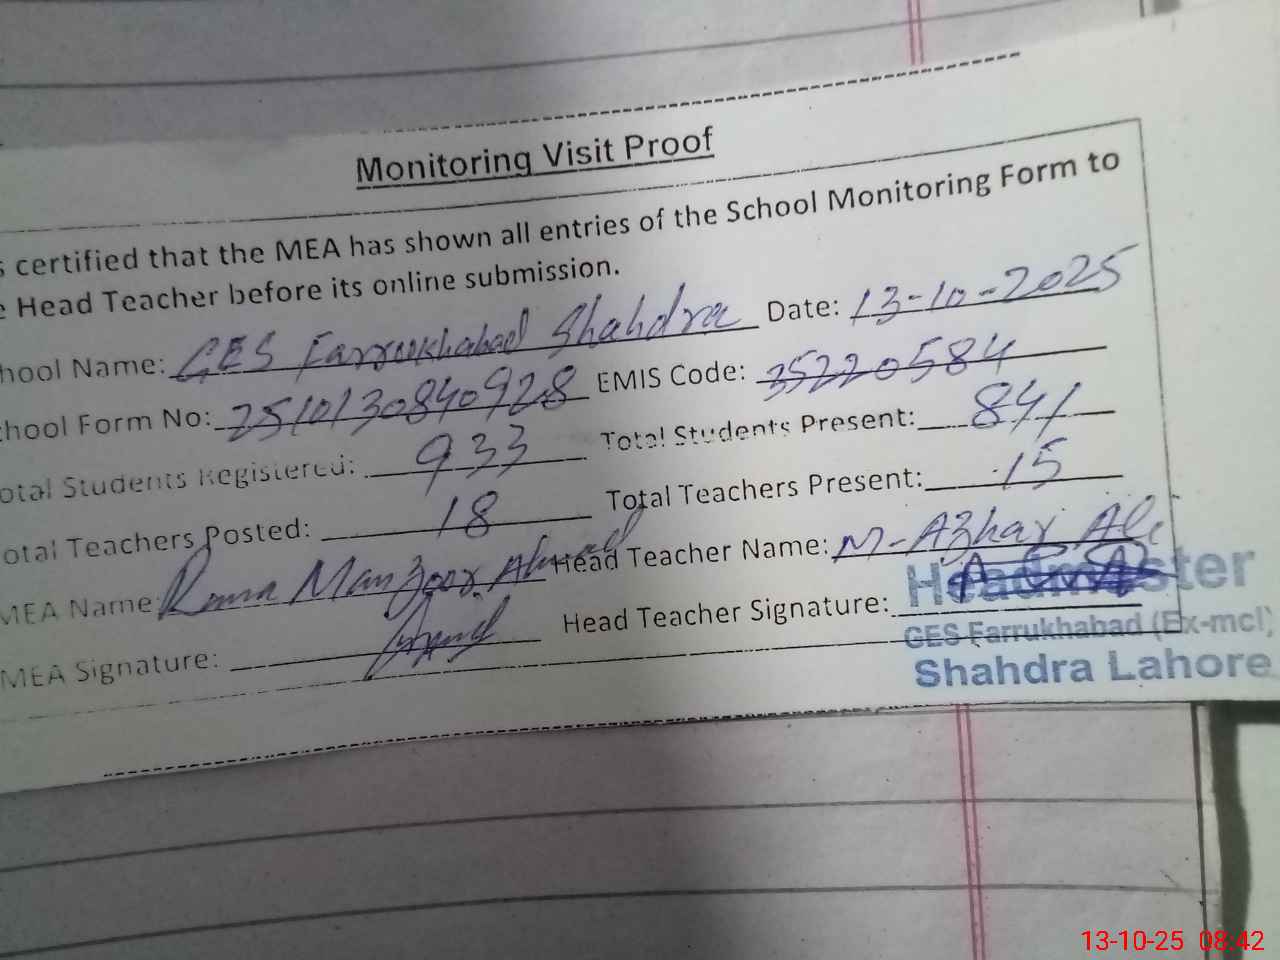 Monitoring Visit Proof
s certified that the MEA has shown all entries of the School Monitoring Form to
e Head Teacher before its online submission.
hool Name: GES Farrukhabad Shahdra Date: 13-10-2025
chool Form No: 2510130840928 EMIS Code: 35220584
otal Students Registered: 933 Total Students Present: 841
otal Teachers Posted: 18 Total Teachers Present: 15
MEA Name Rana Manzoor Ahmad Head Teacher Name: M-Azhar Ali
MEA Signature: Head Teacher Signature:
Headmaster
GES Farrukhabad (Ex-mcl)
Shahdra Lahore
13-10-25 08:42